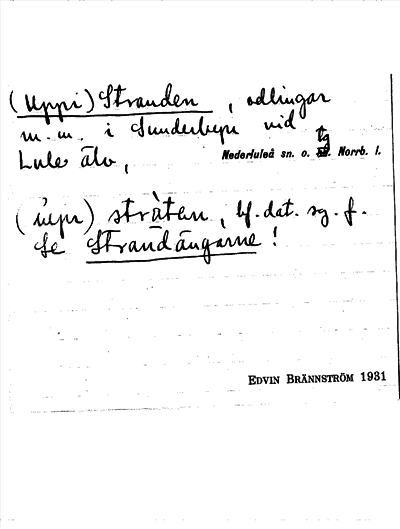 (Uppi) Stranden, odlingar
m.m. i Sunderbyn vid
Lule älv, Nederluleå sn. o. tg. Norrb. l.
(ŭpι) stràten, bf. dat. sg. f.
Se Strandängarne!
EDVIN BRÄNNSTRÖM 1931